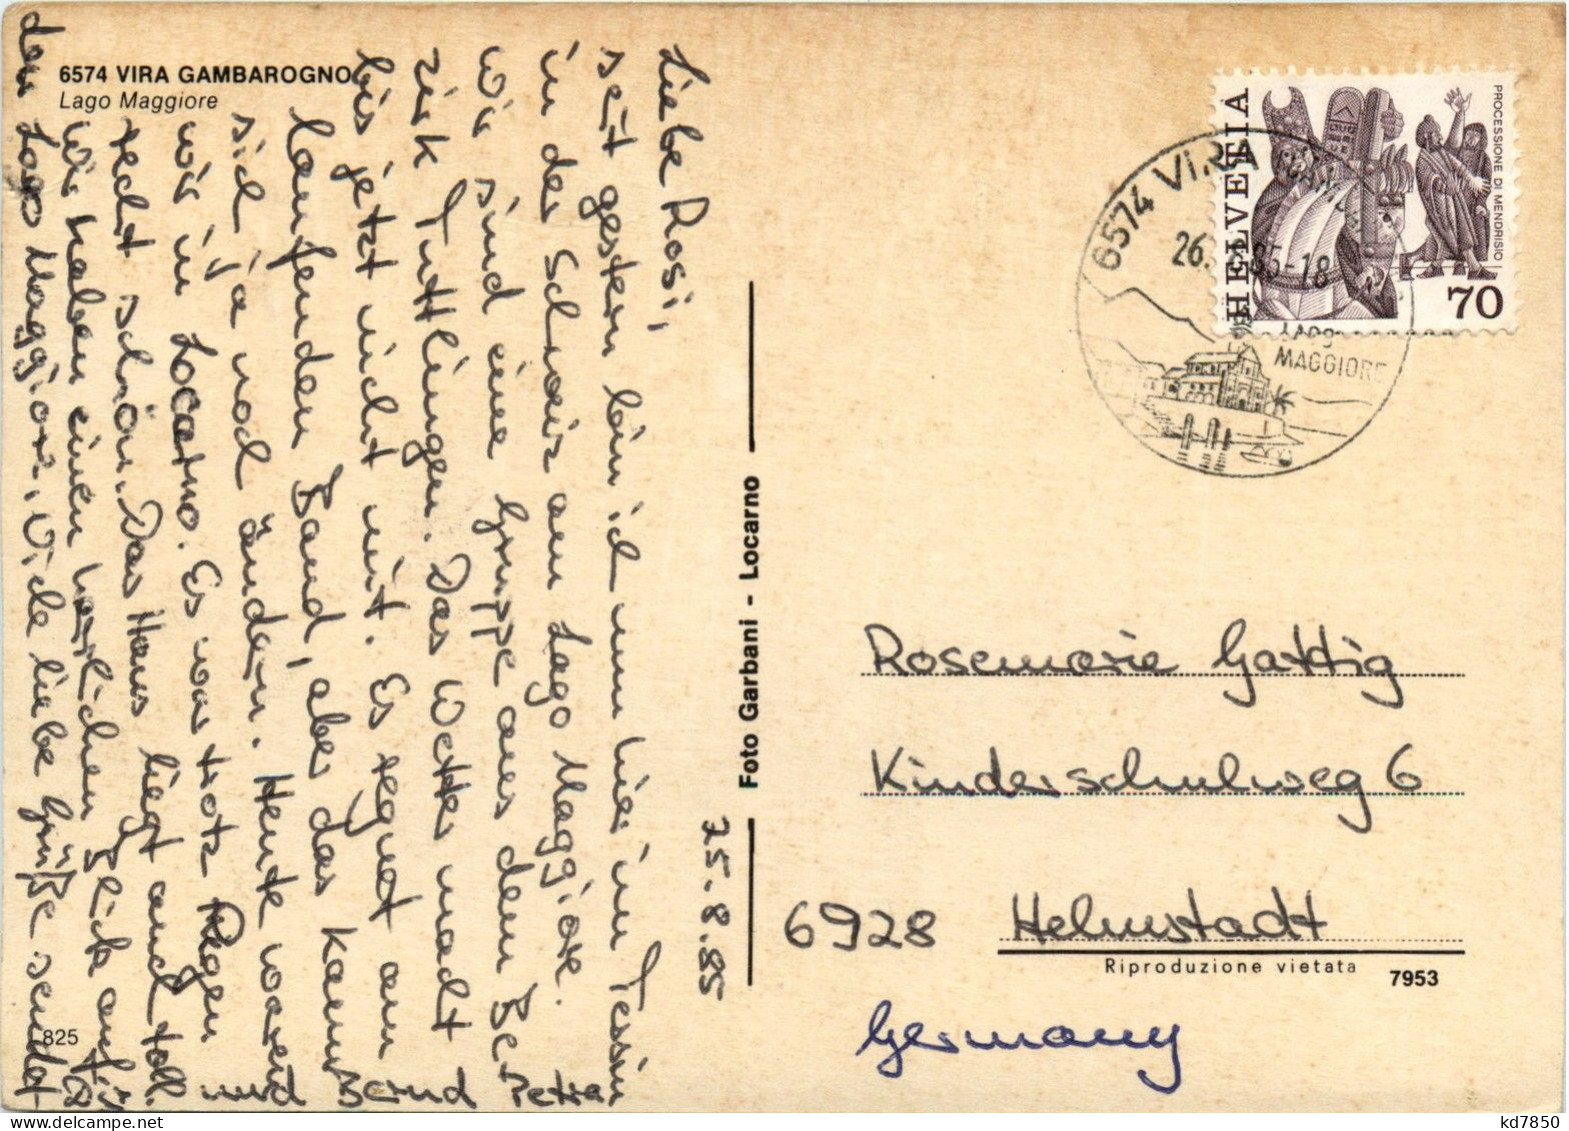 6574 VIRA GAMBAROGNO
Lago Maggiore
25.8.85
Liebe Rosi,
seit gestern bin ich nun hier im Tessin
in der Schweiz am Lago Maggiore.
Wir sind eine Gruppe aus dem Be-
zirk Tuttlingen. Das Wetter macht
bis jetzt nicht mit. Es regnet am
laufenden Band, aber das kann
sich ja noch ändern. Heute waren
wir in Locarno. Es war trotz Regen
recht schön. Das Haus liegt auch toll.
Wir haben einen herrlichen Blick auf
den Lago Maggiore. Viele liebe Grüße sendet
Petra
und Bernd
825
Foto Garbani - Locarno
HELVETIA
PROCESSIONE DI MENDRISIO
70
6574 VIRA GAMBAROGNO
26. 85-18
LAGO
MAGGIORE
Rosemarie Gattig
Kinderschulweg 6
6928 Helmstadt
Riproduzione vietata
7953
Germany
kd7850